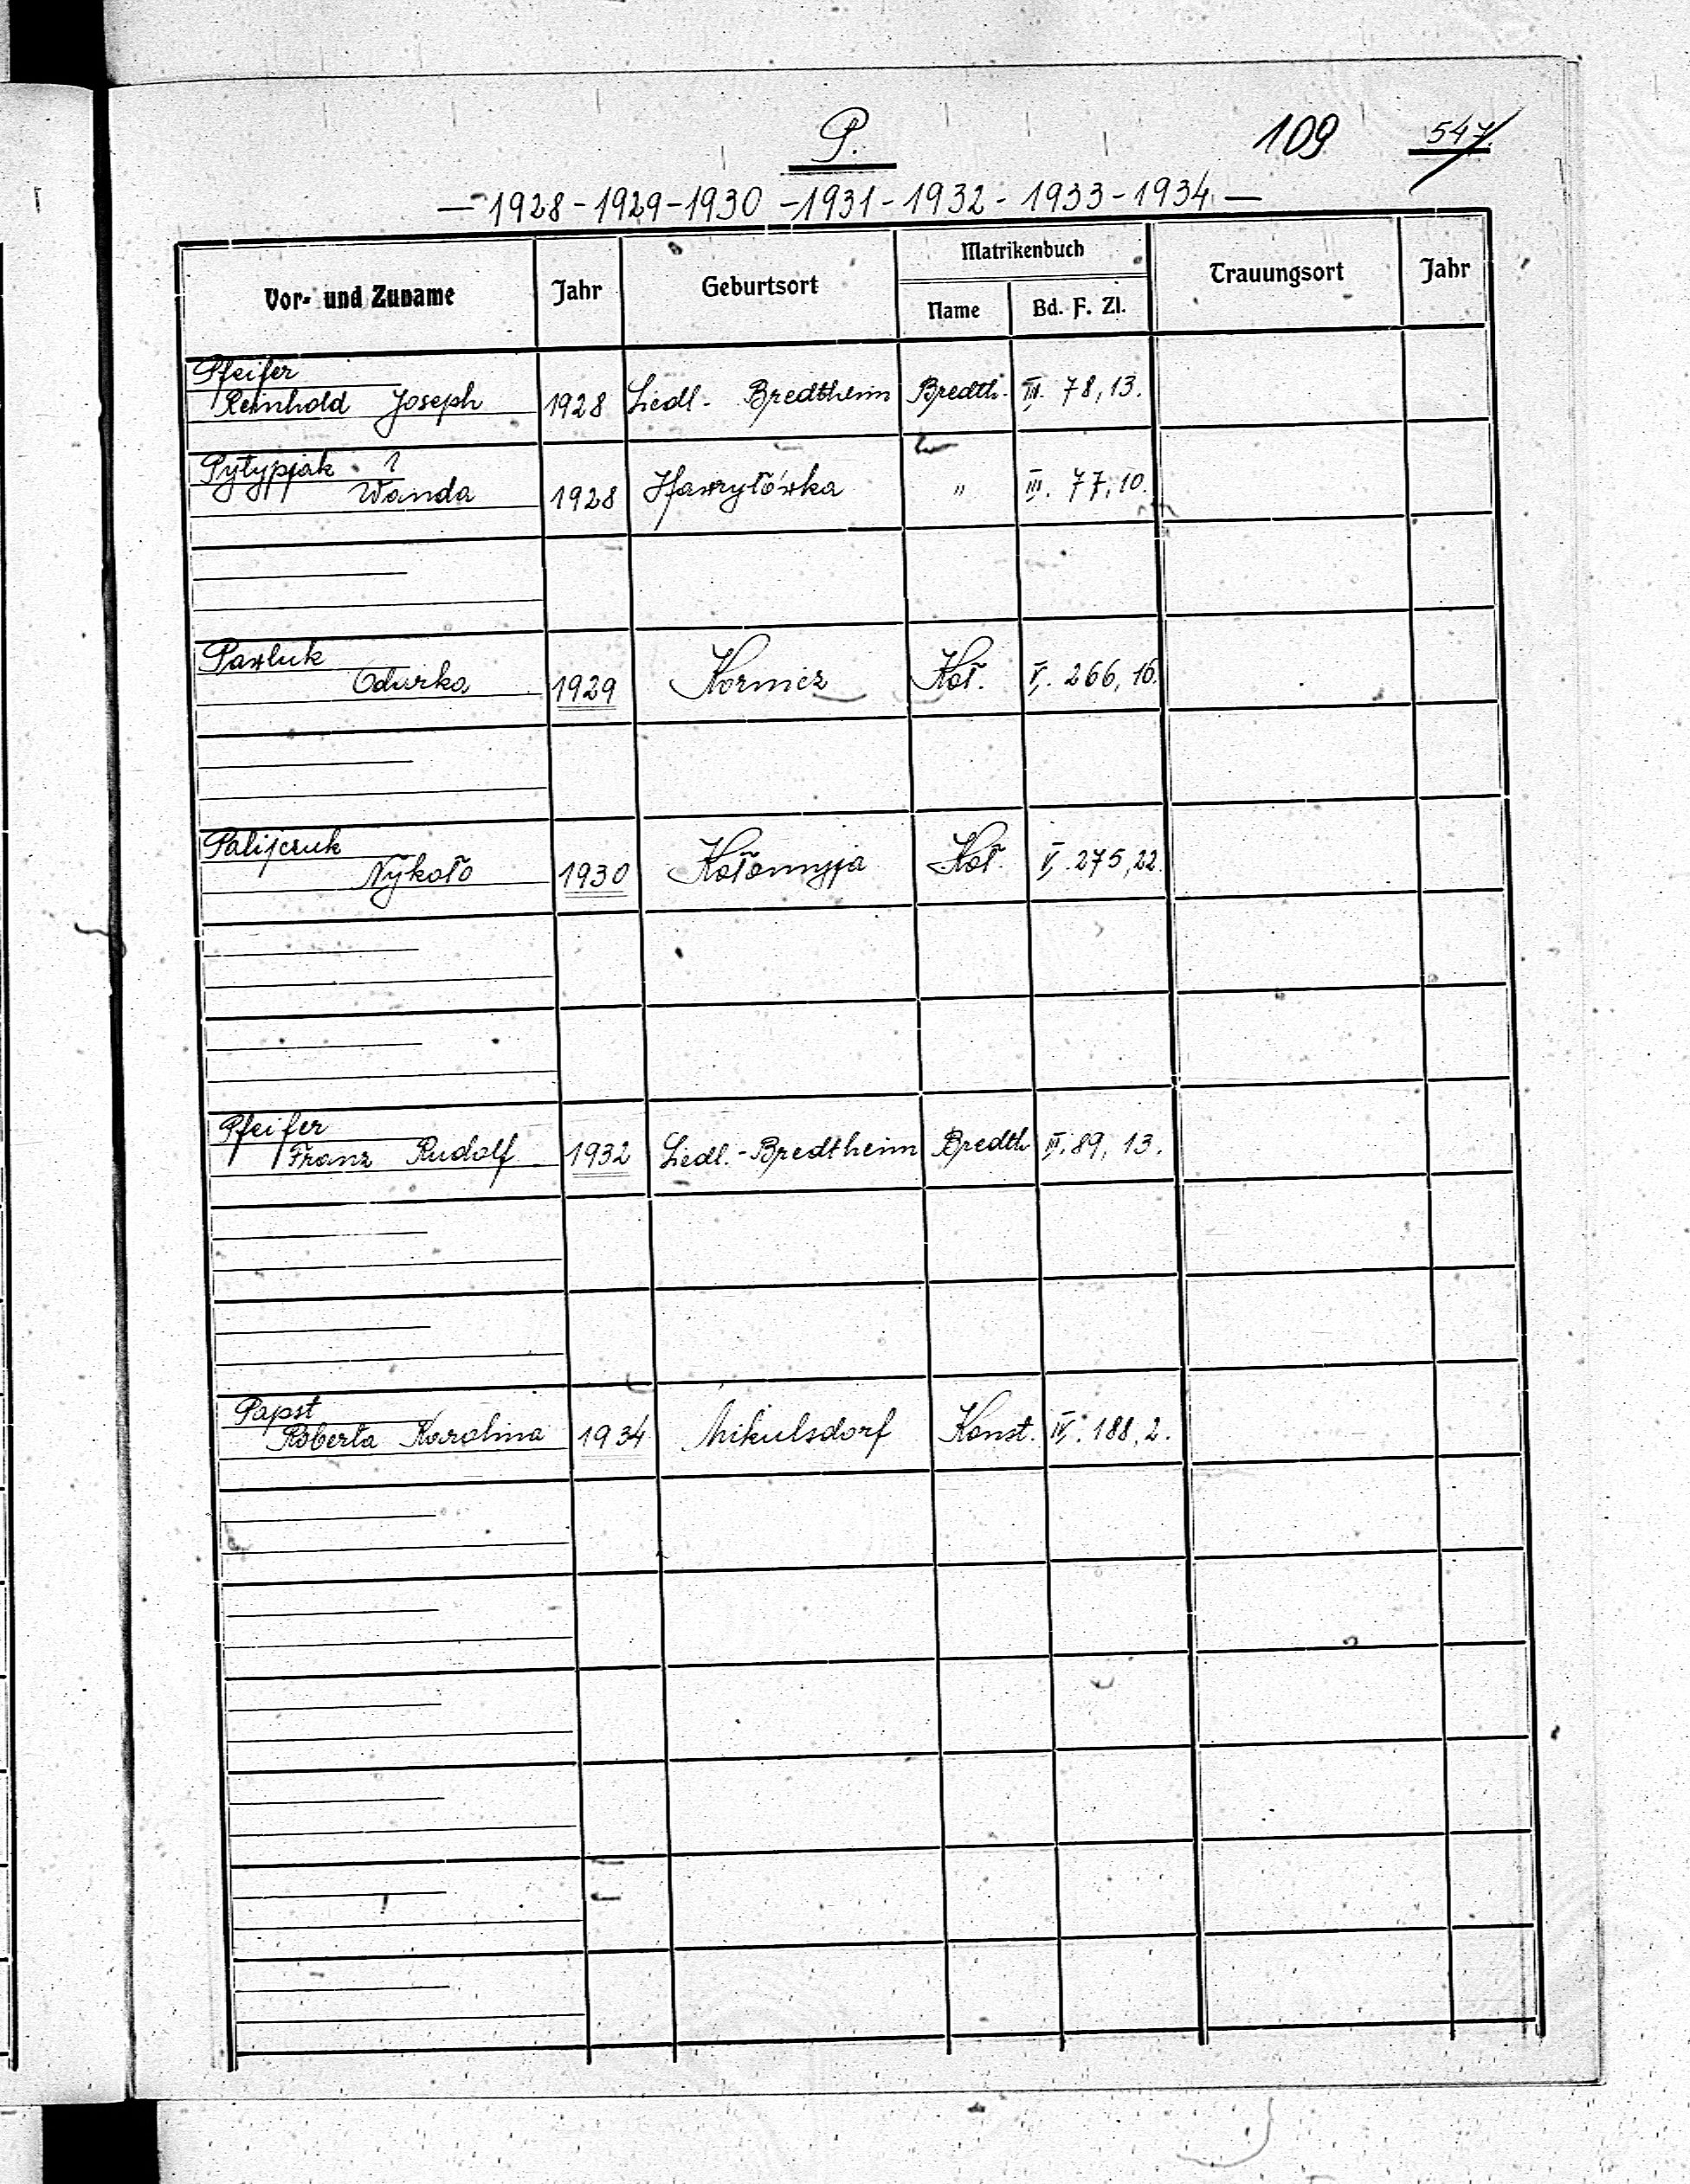 P.
109
547
— 1928 - 1929 - 1930 - 1931 - 1932 - 1933 - 1934 —
Vor- und Zuname Jahr Geburtsort Matrikenbuch Trauungsort Jahr
Name Bd. F. Zl.
Pfeifer
Reinhold Joseph 1928 Siedl- Bredtheim Bredth. III. 78, 13.
Pytypjak ?
Wanda 1928 Hawryłówka " III. 77, 10.
Pawluk
Odurka 1929 Kornicz Koł. V. 266, 16.
Palijczuk
Nykoło 1930 Kołomyja Koł. V. 275, 22.
Pfeifer
Franz Rudolf 1932 Siedl.-Bredtheim Bredth III. 89, 13.
Papst
Roberta Karolina 1934 Mikulsdorf Konst. IV. 188, 2.